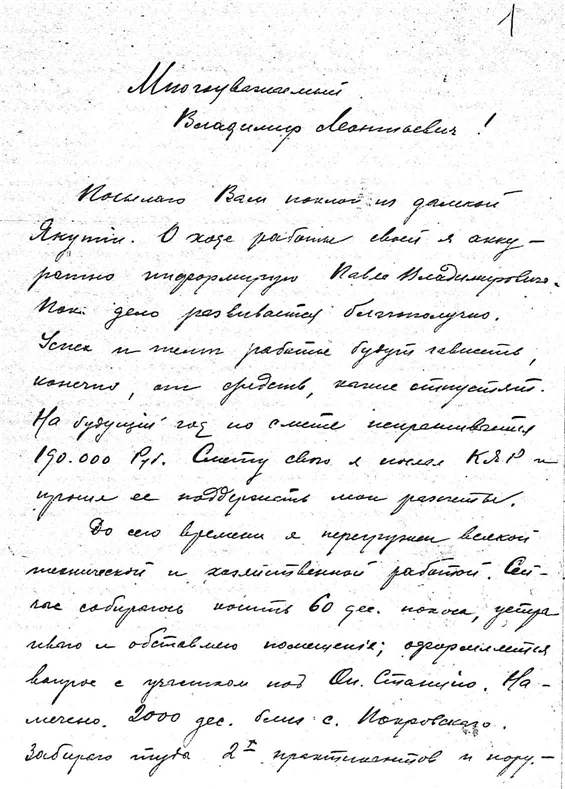 1
Многоуважаемый
Владимир Леонтьевич!
Посылаю Вам поклон из далекой
Якутии. О ходе работы своей я акку-
ратно информирую Павла Владимировича.
Пока дело развивается благополучно.
Успех и темп работы будут зависеть,
конечно, от средств, какие отпустят.
На будущий год по смете испрашивается
190.000 Руб. Смету свою я послал КЯР и
просил ее поддержать мои расчеты.
До сего времени я перегружен всякой
технической и хозяйственной работой. Сей-
час собираюсь косить 60 дес. покоса, устра
иваю и обставляю помещение; оформляется
вопрос с участком под Оп. Станцию. На-
мечено 2000 дес. близ с. Покровского.
Забираю туда 2х практикантов и пору-